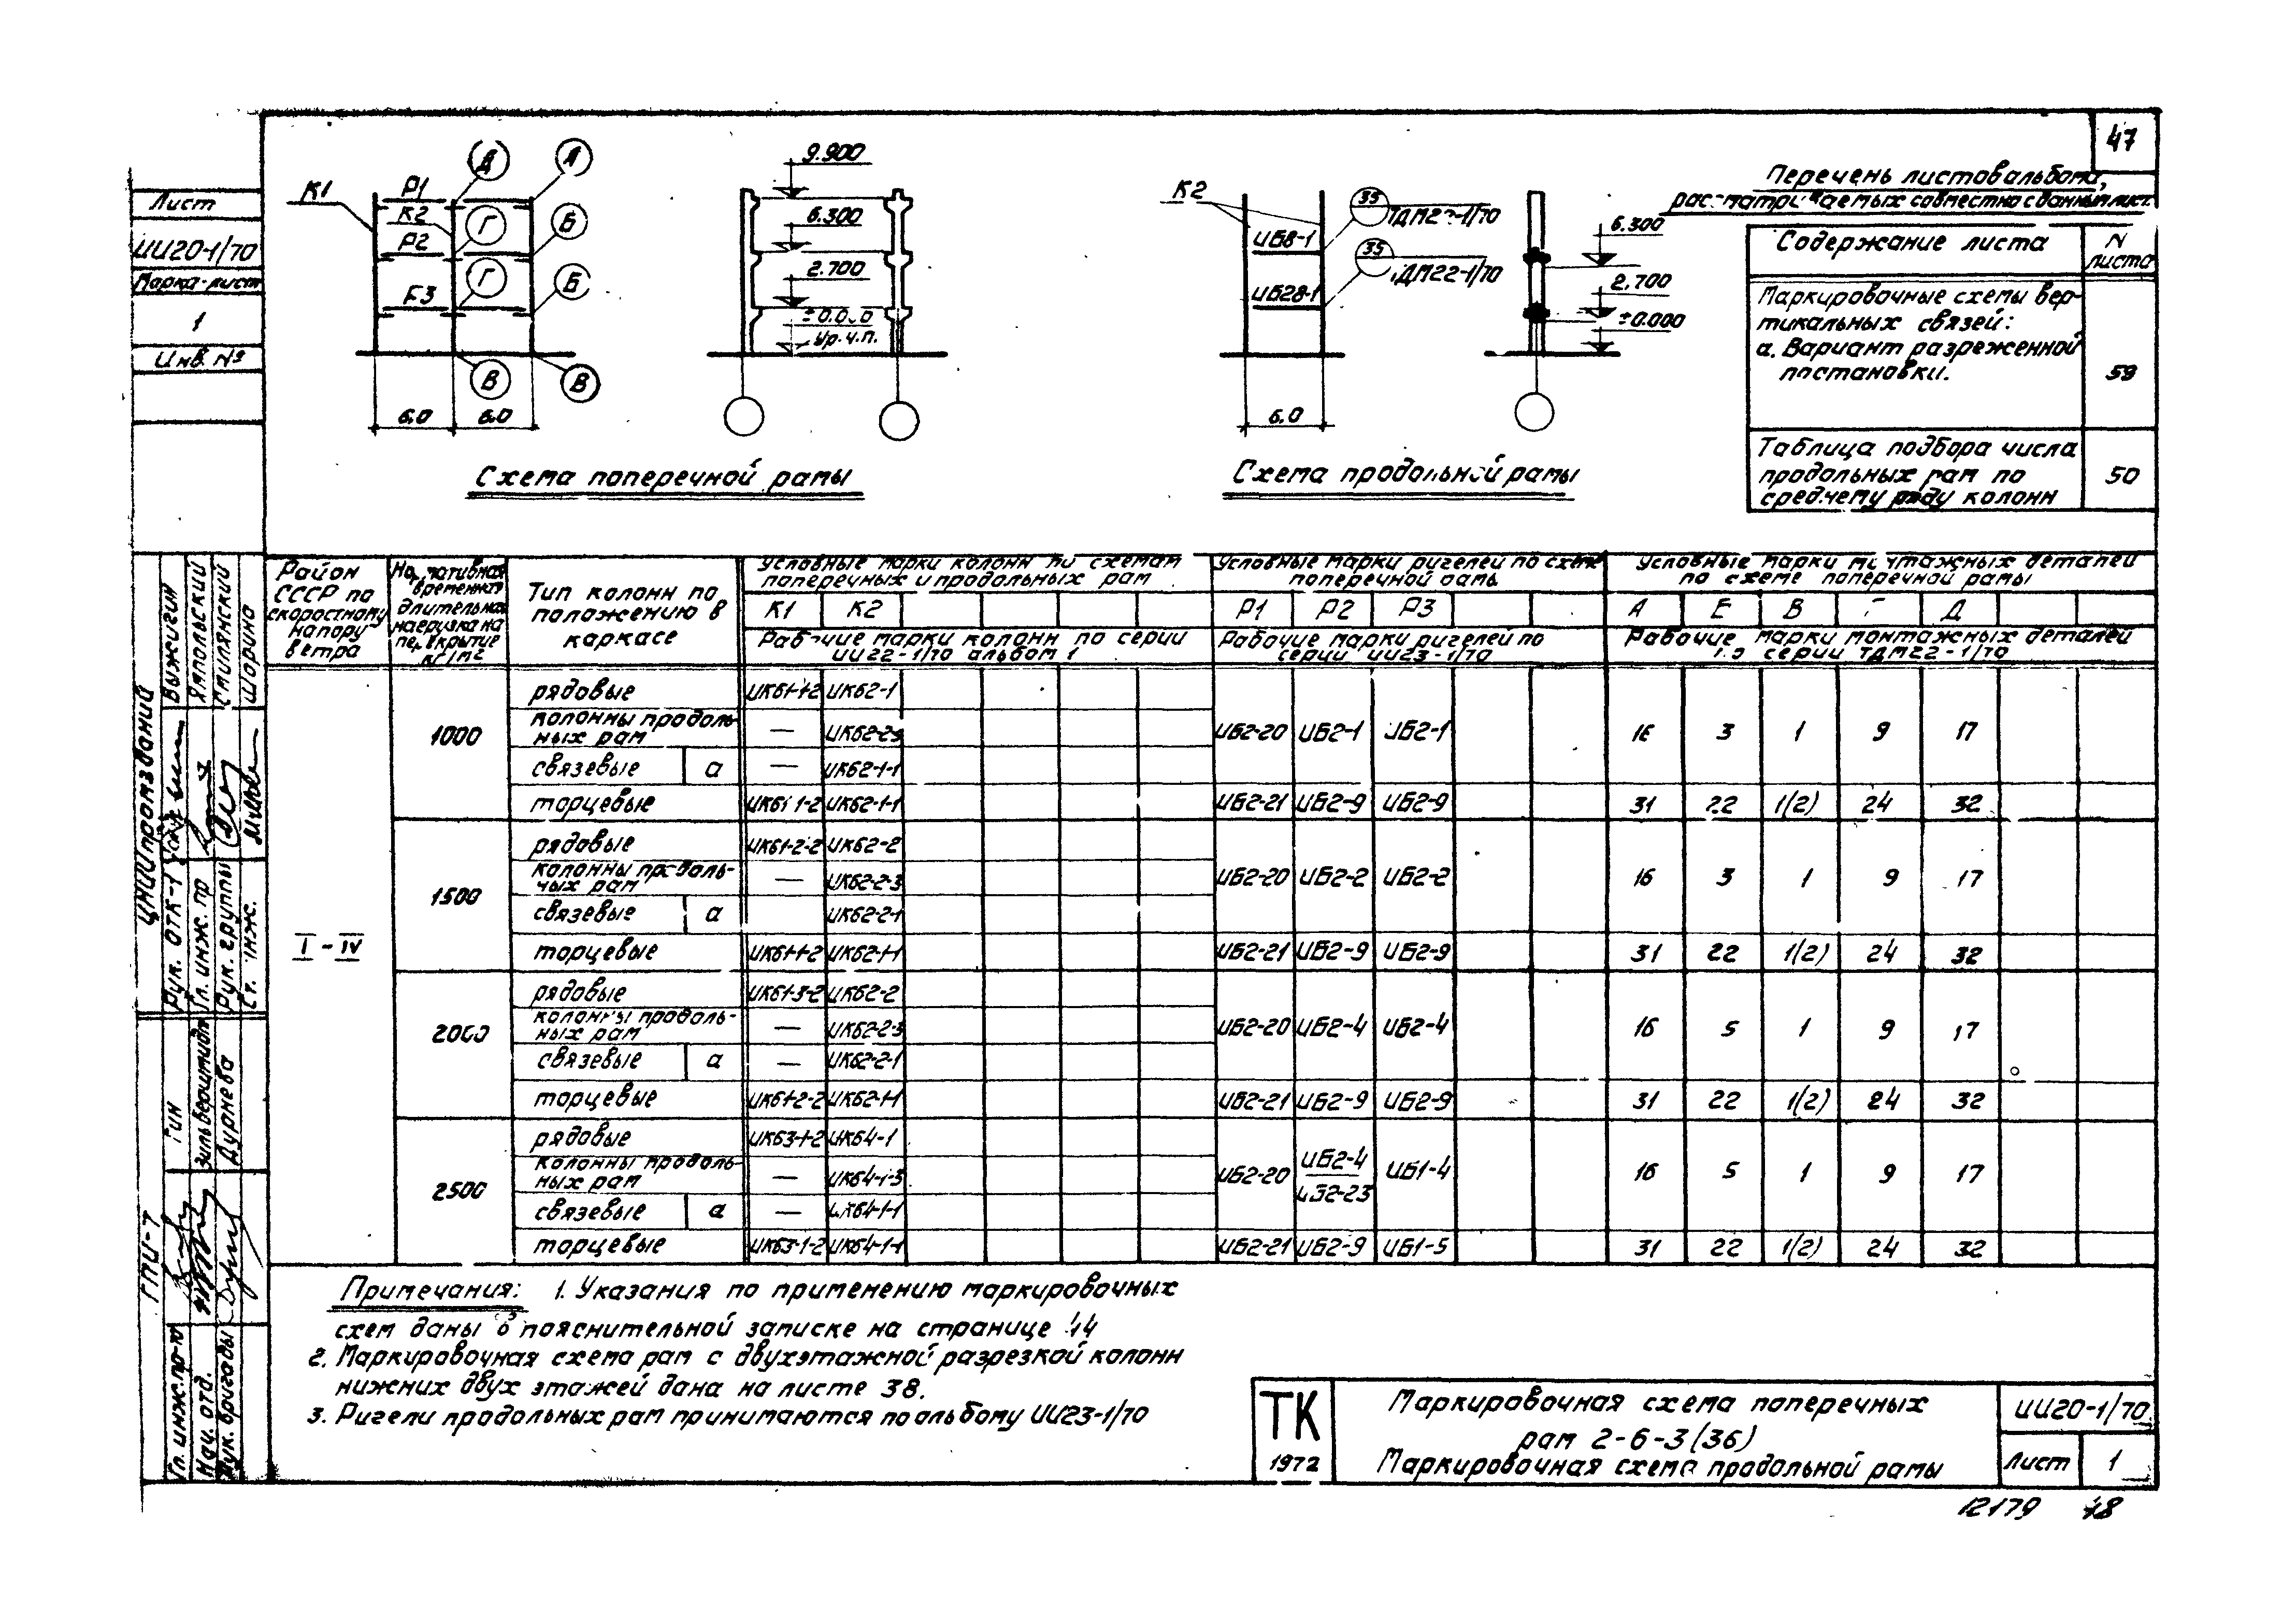 47
Лист
ИИ20-1/70
Марка-лист
1
Инв. №
К1
Р1
К2
Р2
Д
А
Г
Б
Г
Б
В
В
6.0
6.0
9.900
6.300
2.700
±0.000
Ур.ч.п.
Схема поперечной рамы
К2
ИБ8-1
ИБ28-1
35
35
ТДМ22-1/70
6.0
6.300
2.700
±0.000
Схема продольной рамы
Перечень листов альбома,
рассматриваемых совместно с данным лист.
Содержание листа
N листа
Маркировочные схемы вер-
тикальных связей:
а. Вариант разреженной
постановки.
59
Таблица подбора числа
продольных рам по
среднему ряду колонн
50
Район СССР по скоростному напору ветра
Нормативная временная длительная нагрузка на перекрытие кг/м2
Тип колонн по положению в каркасе
Условные марки колонн по схемам поперечных и продольных рам
К1 К2
Рабочие марки колонн по серии ИИ22-1/70 альбом 1
Условные марки ригелей по схеме поперечной рамы
Р1 Р2 Р3
Рабочие марки ригелей по серии ИИ23-1/70
Условные марки монтажных деталей по схеме поперечной рамы
А Б В Г Д
Рабочие марки монтажных деталей по серии ТДМ22-1/70
I - IV
1000
рядовые ИК61-1-2 ИК62-1
колонны продоль-
ных рам — ИК62-2-3
связевые а — ИК62-1-1
ИБ2-20 ИБ2-1 ИБ2-1 16 3 1 9 17
торцевые ИК61-1-2 ИК62-1-1 ИБ2-21 ИБ2-9 ИБ2-9 31 22 1(2) 24 32
1500
рядовые ИК61-2-2 ИК62-2
колонны продоль-
ных рам — ИК62-2-3
связевые а ИК62-2-1
ИБ2-20 ИБ2-2 ИБ2-2 16 3 1 9 17
торцевые ИК61-1-2 ИК62-1-1 ИБ2-21 ИБ2-9 ИБ2-9 31 22 1(2) 24 32
2000
рядовые ИК61-3-2 ИК62-2
колонны продоль-
ных рам — ИК62-2-3
связевые а — ИК62-2-1
ИБ2-20 ИБ2-4 ИБ2-4 16 5 1 9 17
торцевые ИК61-2-2 ИК62-1-1 ИБ2-21 ИБ2-9 ИБ2-9 31 22 1(2) 24 32
2500
рядовые ИК63-1-2 ИК64-1
колонны продоль-
ных рам — ИК64-1-3
связевые а — ИК64-1-1
ИБ2-20 ИБ2-4 ИБ2-23 ИБ1-4 16 5 1 9 17
торцевые ИК63-1-2 ИК64-1-1 ИБ2-21 ИБ2-9 ИБ1-5 31 22 1(2) 24 32
Примечания: 1. Указания по применению маркировочных
схем даны в пояснительной записке на странице 44
2. Маркировочная схема рам с двухэтажной разрезкой колонн
нижних двух этажей дана на листе 38.
3. Ригели продольных рам принимаются по альбому ИИ23-1/70
ТК
1972
Маркировочная схема поперечных
рам 2-6-3(36)
Маркировочная схема продольной рамы
ИИ20-1/70
Лист 1
12179 48
ЦНИИпромзданий
Рук. ОТК-1
Гл. инж. пр
Рук. группы
Ст. инж.
Выжигин
Ямпольский
Смилянский
Шорина
ГПИ-7
Гл. инж. по-ю
Нач. отд.
Рук. бригады
Зильберштидт
Дурнева